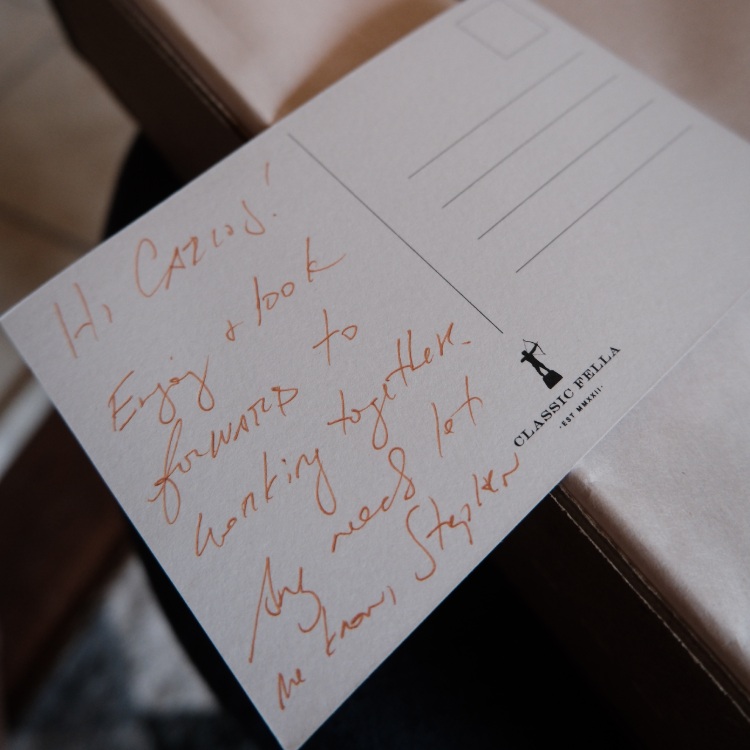 Hi CARlos!
Enjoy & look
forWARD to
working together.
Any need let
me know, Stephen
CLASSIC FELLA
·EST MMXXII·